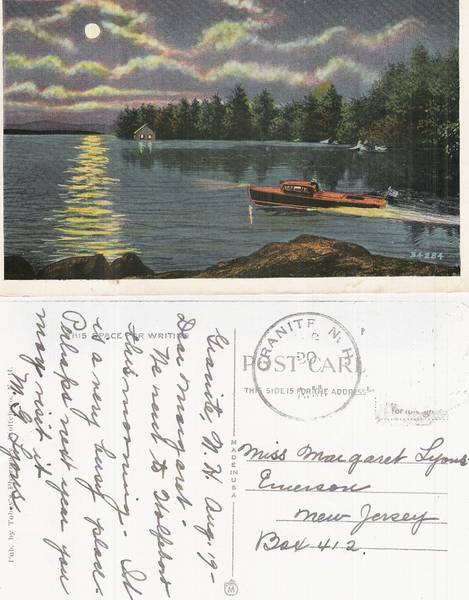 34284
THIS SPACE FOR WRITING
POST CARD
THIS SIDE IS FOR THE ADDRESS
GRANITE N. H.
20
MADE IN USA
Granite, N. H. Aug. 19-
Dear Margaret-
We went to Wolfboro
this morning. It
is a very busy place.
Perhaps next year you
may visit it
M. G. Lyons
Miss Margaret Lyons
Emerson
New Jersey
Box 412.
Pub. by
M